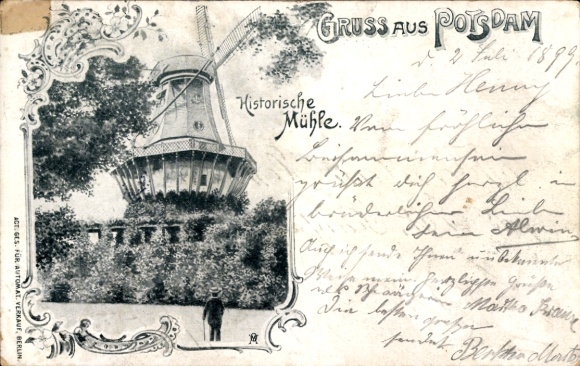 Gruss aus Potsdam
d. 2 Juli 1899.
Historische
Mühle.
Liebe Henny
Vom fröhlichen
Beisammensein
grüßt dich herzl. in
brüderlicher Liebe
dein Alwin
Auch ich sende Ihnen unbekannter
Weise meine herzlichsten Grüßen
als
Martha
Die besten Grüße
sendet Bertha
ACT. GES. FÜR AUTOMAT. VERKAUF, BERLIN.